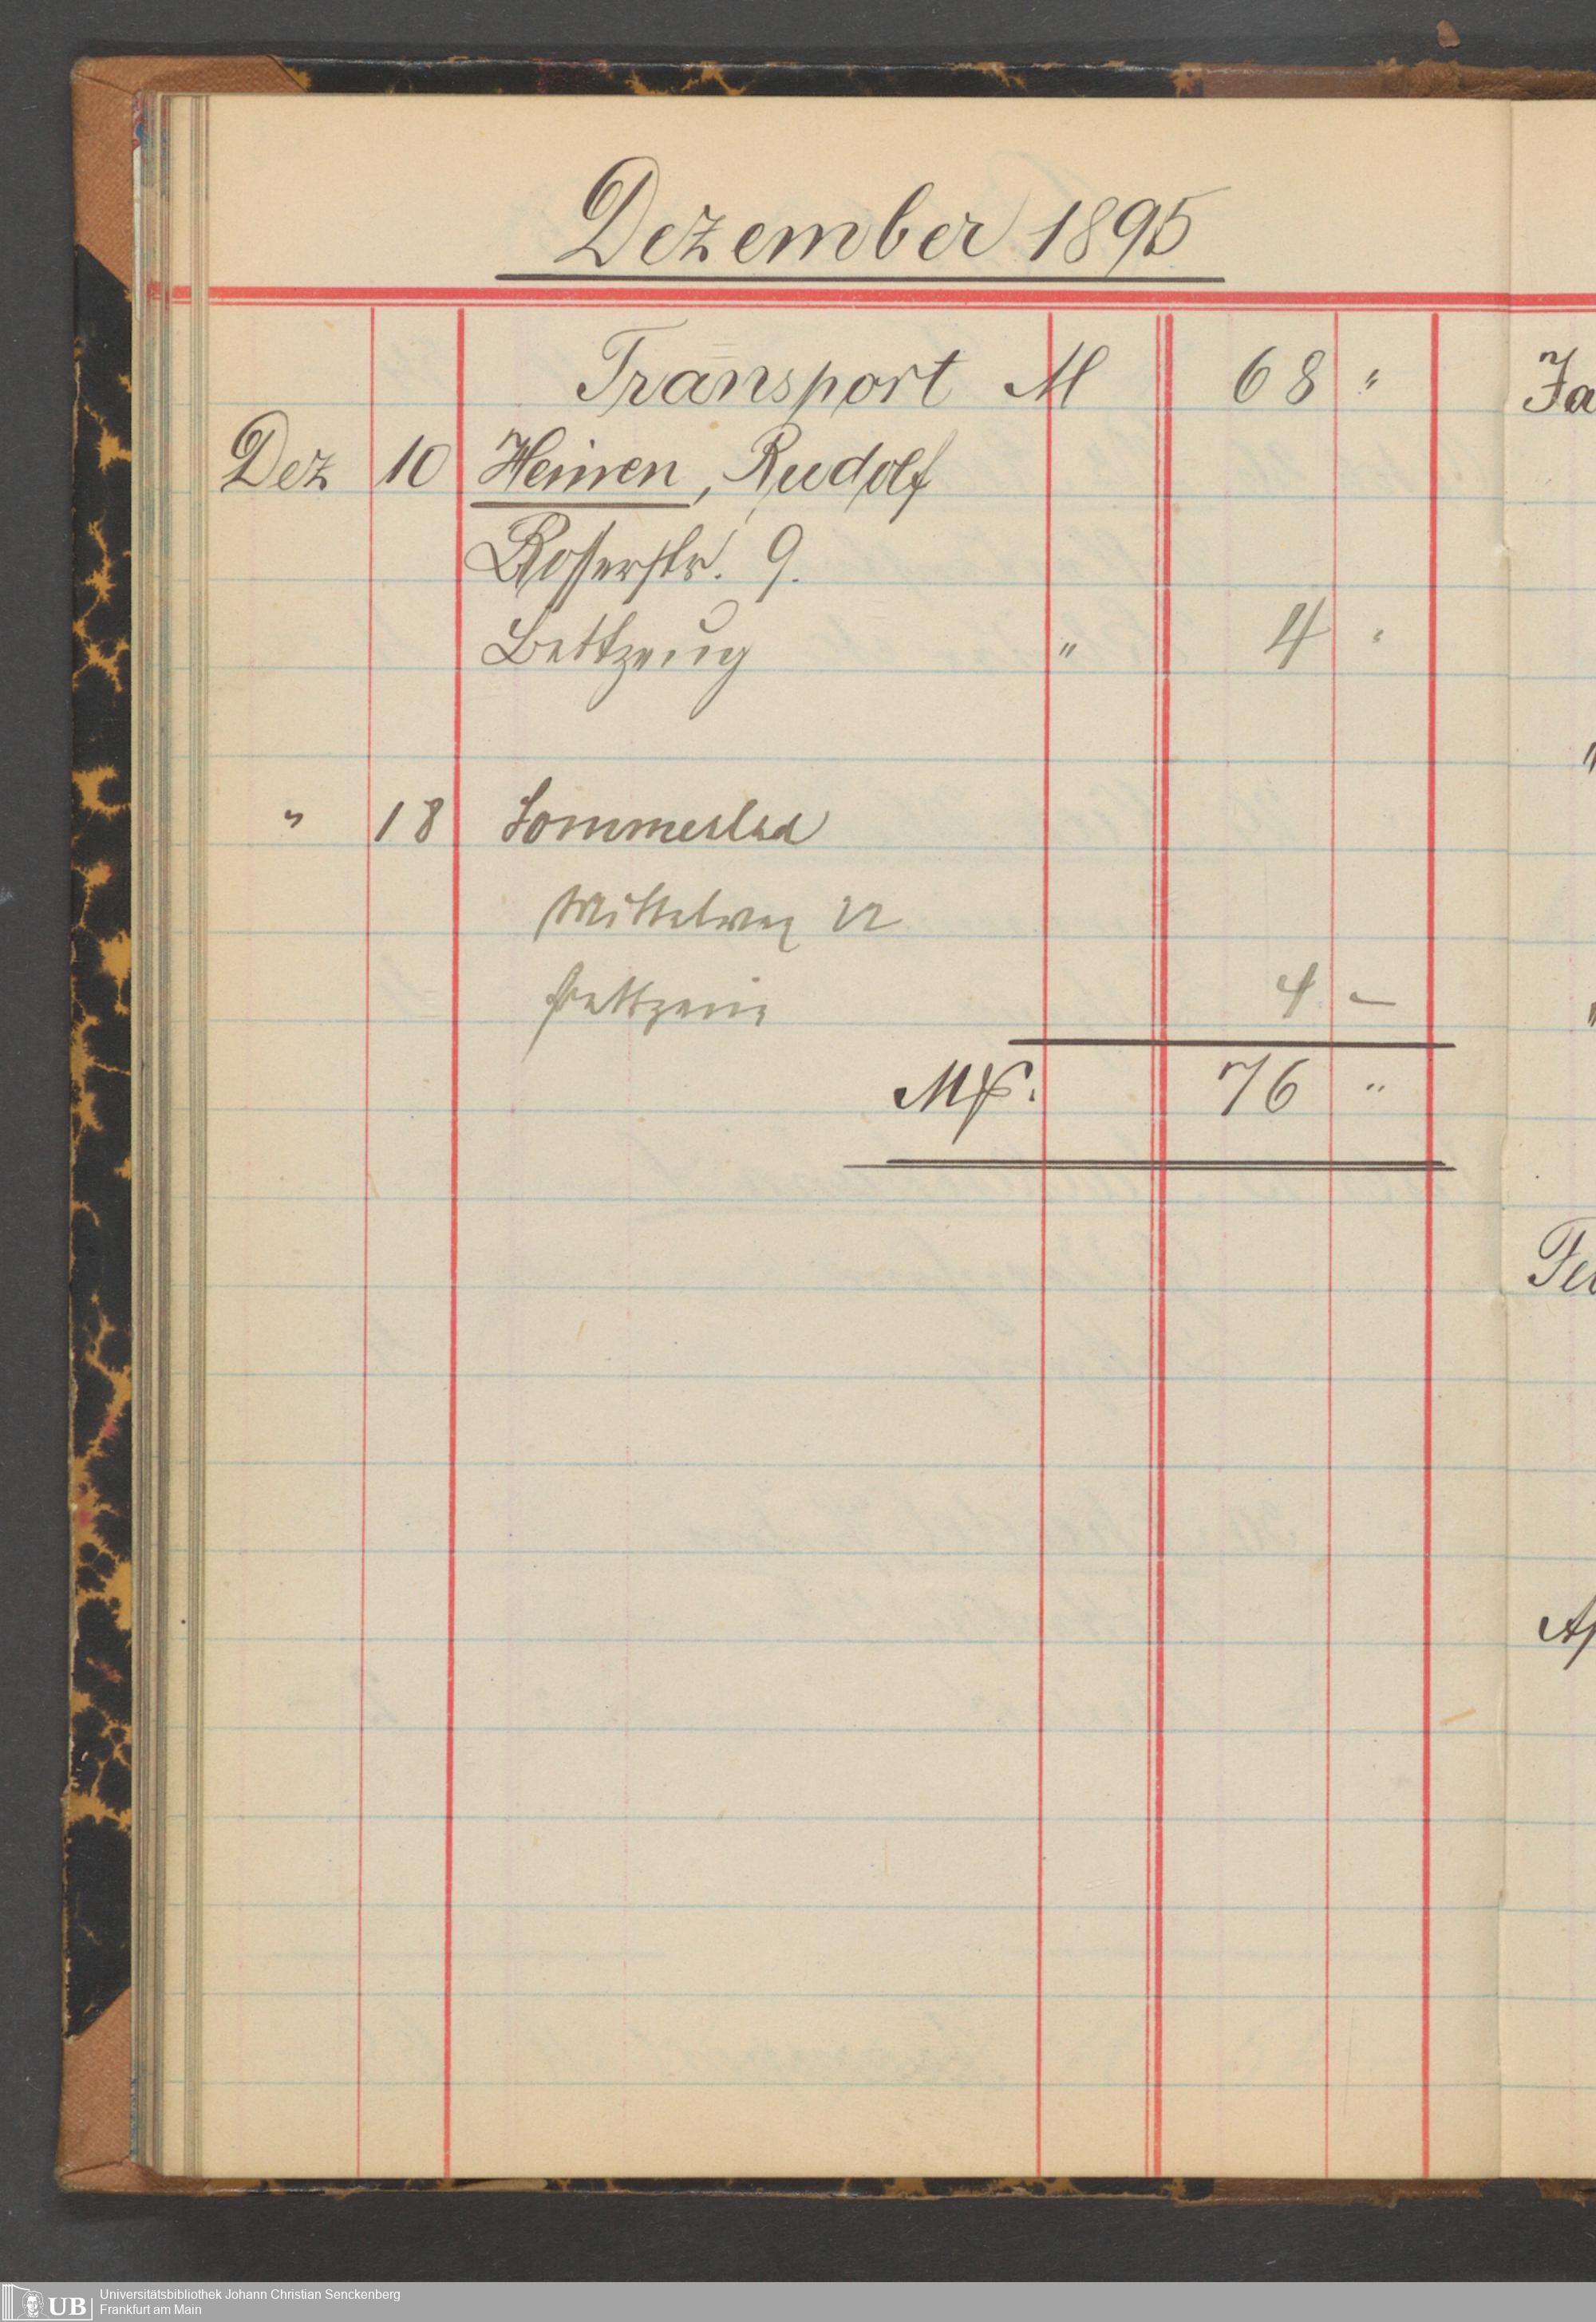 Dezember 1895
Transport M 68 "
Dez 10 Heinen, Rudolf
Rosserstr. 9.
Bettzeug " 4 "
" 18 Sommerlad
Mittelweg
Bettzeug 4 –
Mk. 76 "
Ja
"
"
Fe
Ap
UB
Universitätsbibliothek Johann Christian Senckenberg
Frankfurt am Main